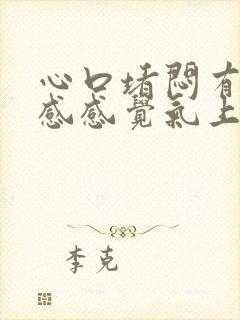 心口堵悶有
感感覺氣上
李克